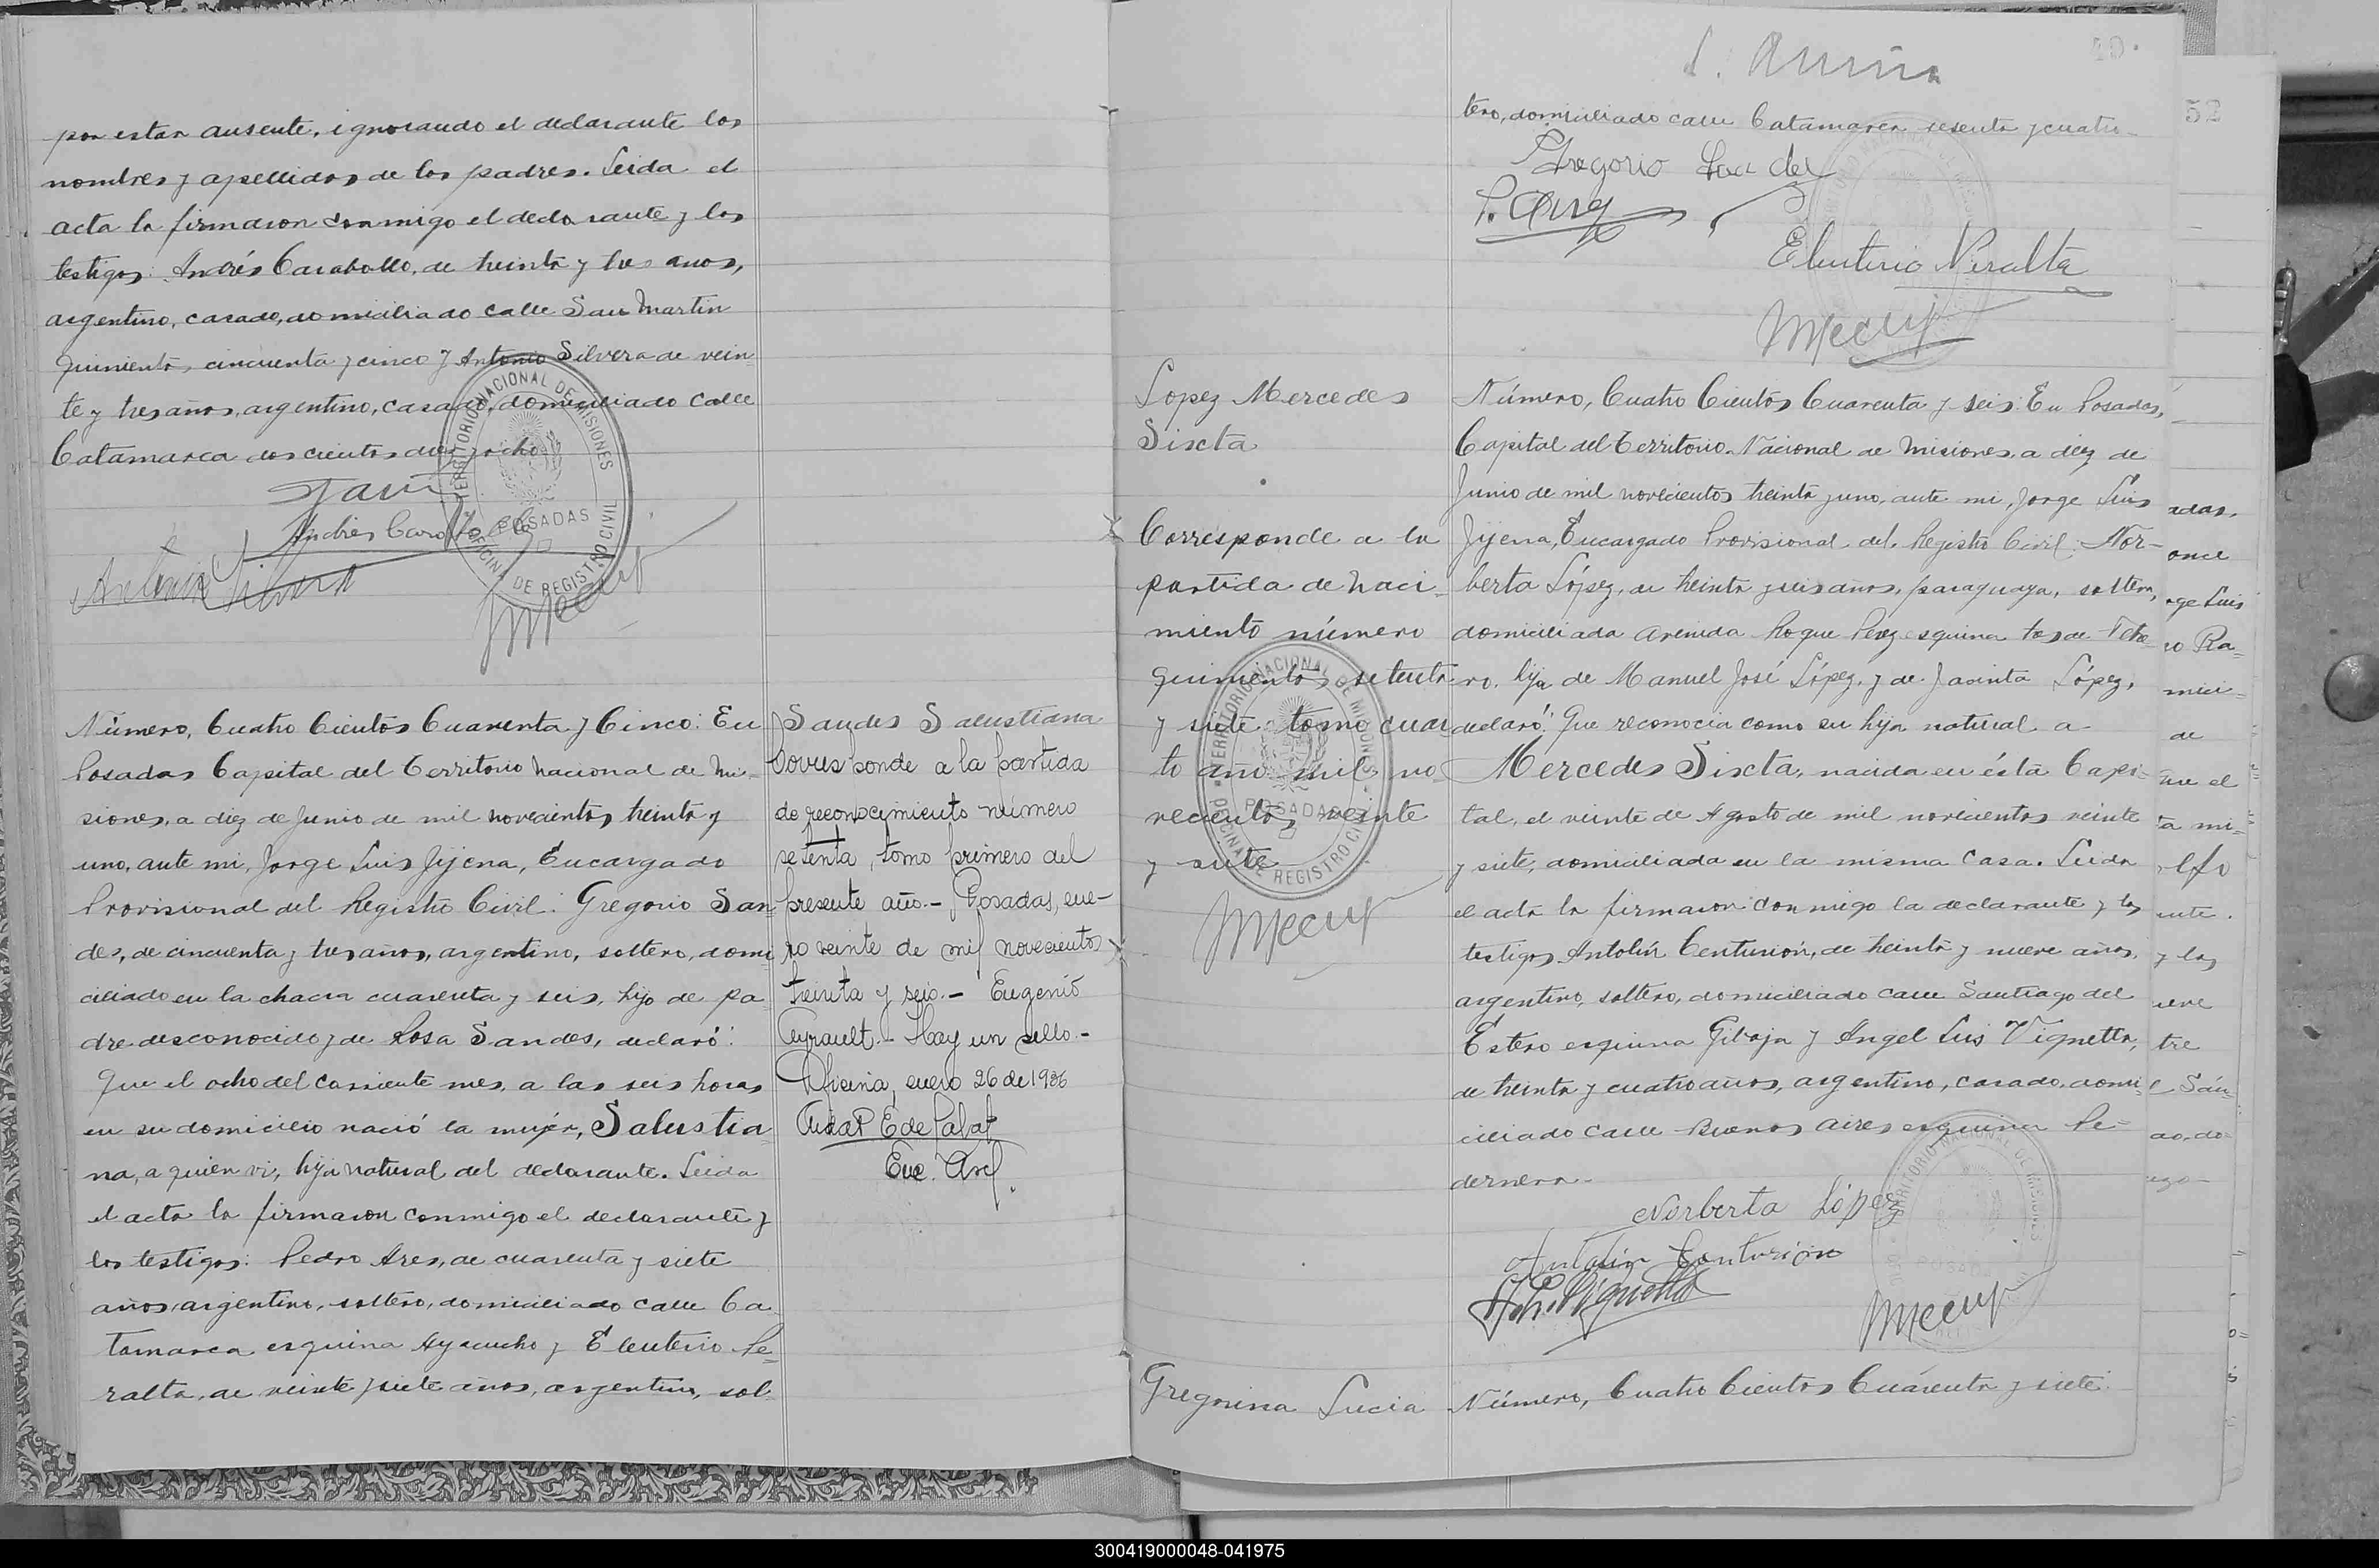 por estar ausente, ignorando el declarante los
nombres y apellidos de los padres. Leida el
acta la firmaron conmigo el declarante y los
testigos: Andrés Caraballo, de treinta y tres anos,
argentino, casado, domiciliado calle San Martin
quinientos cincuenta y cinco y Antonio Silvera de vein
te y tres años, argentino, casado, domiciliado calle
Catamarca doscientos diez y ocho
TERRITORIO NACIONAL DE MISIONES
POSADAS
OFICINA DE REGISTRO CIVIL
Antonio Silvera
Número, Cuatro Cientos Cuarenta y Cinco: En
Posadas Capital del Territorio Nacional de Mi-
siones, a diez de Junio de mil novecientos treinta y
uno, ante mi, Jorge Luis Jijena, Encargado
Provisional del Registro Civil: Gregorio San
des, de cincuenta y tres años, argentino, soltero, domi
ciliado en la chacra cuarenta y seis, hijo de pa
dre desconocido y de Rosa Sandes, declaró:
Que el ocho del corriente mes, a las seis horas
en su domicilio nació la mujer, Salustia
na, a quien vi, hija natural del declarante. Leida
el acta la firmaron conmigo el declarante y
los testigos: Pedro Ares, de cuarenta y siete
años, argentino, soltero, domiciliado calle Ca
tamarca esquina Ayacucho y Eleuterio Pe-
ralta, de veinte y siete años, argentino, sol-
Sandes Salustiana
Corresponde a la partida
de reconocimiento número
setenta, tomo primero del
presente año.- Posadas, ene-
ro veinte de mil novecientos
treinta y seis.- Eugenio
Ayrault.- Hay un sello.-
Oficina, enero 26 de 1936
Enc. Arch.
52
tero, domiciliado calle Catamarca sesenta y cuatro-
Gregorio Sandes
P. Ares
Eleuterio Peralta
Lopez Mercedes
Sixta
Corresponde a la
partida de naci-
miento número
quinientos setenta
y siete tomo cuar
to año mil no-
vecientos veinte
y siete
TERRITORIO NACIONAL DE MISIONES
POSADAS
OFICINA DE REGISTRO CIVIL
Número, Cuatro Cientos Cuarenta y seis: En Posadas,
Capital del Territorio Nacional de Misiones, a diez de
Junio de mil novecientos treinta y uno, ante mi, Jorge Luis
Jijena, Encargado Provisional del Registro Civil: Nor-
berta López, de treinta y seis años, paraguaya, soltera,
domiciliada Avenida Roque Perez esquina
ro, hija de Manuel José López, y de Jacinta López,
declaró: Que reconocia como su hija natural a
Mercedes Sixta, nacida en ésta Capi-
tal, el veinte de Agosto de mil novecientos veinte
y siete, domiciliada en la misma casa. Leida
el acta la firmaron conmigo la declarante y los
testigos Antolín Centurión, de treinta y nueve años,
argentino, soltero, domiciliado calle Santiago del
Estero esquina Gibaja y Angel Luis Vignetta,
de treinta y cuatro años, argentino, casado, domi
ciliado calle Buenos Aires esquina Pe-
dernera.-
Norberta López
Antolin Centurion
Gregorina Lucia
Número, Cuatro Cientos Cuarenta y siete:
300419000048-041975